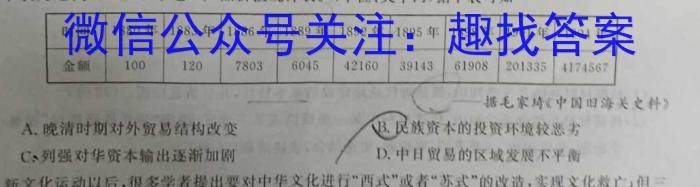 微信公众号关注：趣找答案
1895年
金额 100 120 7803 6045 42160 39143 61908 201335 4174567
据毛家琦《中国旧海关史料》
A. 晚清时期对外贸易结构改变 B. 民族资本的投资环境较恶劣
C. 列强对华资本输出逐渐加剧 D. 中日贸易的区域发展不平衡
新文化运动以后，很多学者提出要对中华文化进行“西式”或者“苏式”的改造，实现文化救亡；但三